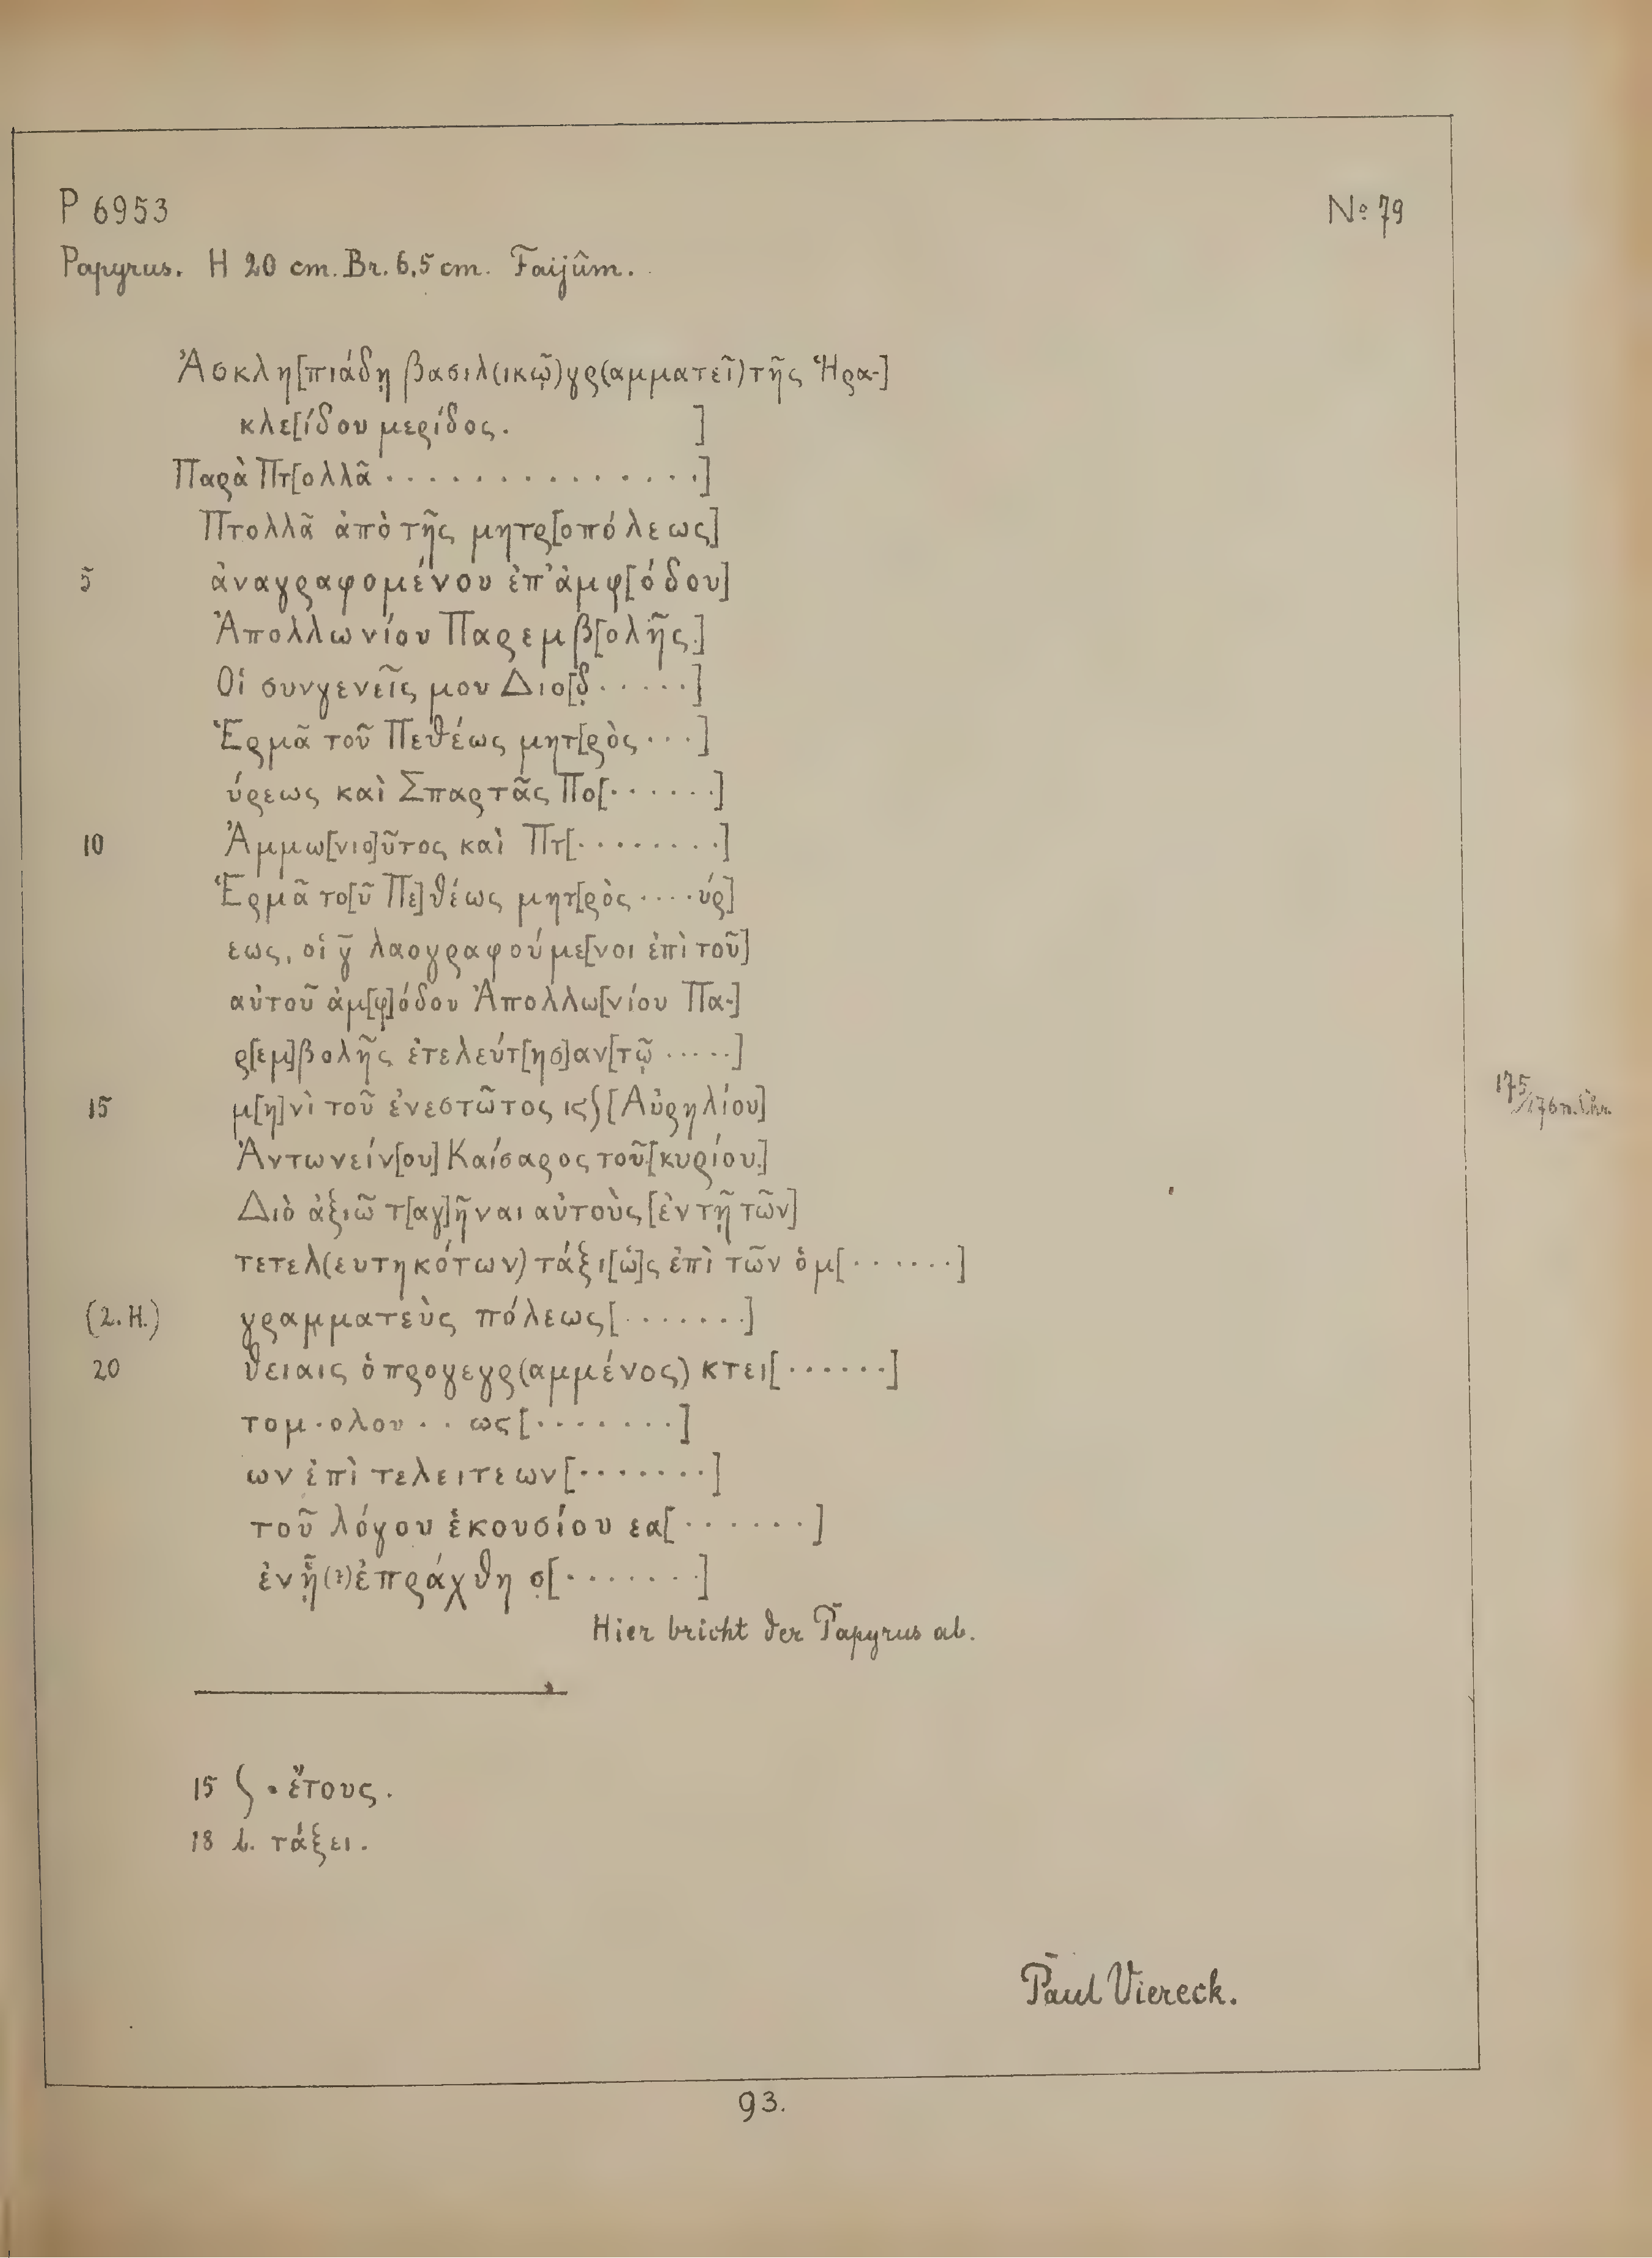 P 6953
No 79
Papyrus. H 20 cm. Br. 6,5 cm. Faijûm.
Ἀσκλη[πιάδῃ βασιλ(ικῷ) γρ(αμματεῖ) τῆς Ἡρα-]
κλε[ίδου μερίδος. ]
Παρὰ Πτ[ολλᾶ ··············]
Πτολλᾶ ἀπὸ τῆς μητρ[οπόλεως]
5 ἀναγραφομένου ἐπ' ἀμφ[όδου]
Ἀπολλωνίου Παρεμβ[ολῆς.]
Οἱ συνγενεῖς μου Διο[δ̣ ·····]
Ἑρμᾶ τοῦ Πεθέως μητ[ρὸς ···]
ύρεως καὶ Σπαρτᾶς Πο[·······]
10 Ἀμμω[νιο]ῦτος καὶ Πτ[········]
Ἑρμᾶ το[ῦ Πε]θέως μητ[ρὸς ····ύρ]
εως, οἱ γ̅ λαογραφούμε[νοι ἐπὶ τοῦ]
αὐτοῦ ἀμ[φ]όδου Ἀπολλω[νίου Πα-]
ρ[εμ]βολῆς ἐτελεύτ[ησ]αν [τῷ ·····]
15 μ[η]νὶ τοῦ ἐνεστῶτος ις ∫ [Αὐρηλίου]
175/176 n. Chr.
Ἀντωνείν[ου] Καίσαρος τοῦ [κυρίου.]
Διὸ ἀξιῶ τ[αγ]ῆναι αὐτοὺς [ἐν τῇ τῶν]
τετελ(ευτηκότων) τάξι [ὡ]ς ἐπὶ τῶν ὁμ[······]
(2. H.) γραμματεὺς πόλεως [·······]
20 θειαις ὁ προγεγρ(αμμένος) κτει[······]
τομ·ολου·· ως [·······]
ων ἐπὶ τελειτεων [·······]
τοῦ λόγου ἑκουσίου εα[······]
ἐν ᾗ (?) ἐπράχθη σ̣[·······]
Hier bricht der Papyrus ab.
15 ∫ · ἔτους.
18 l. τάξει.
Paul Viereck.
93.